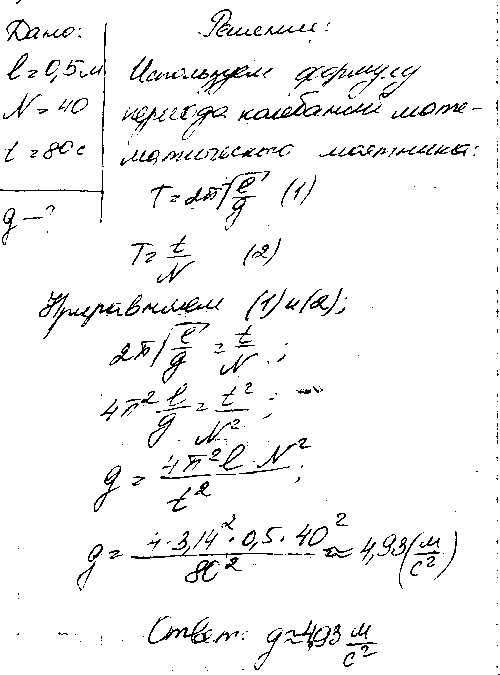 Дано:
l = 0,5 м
N = 40
t = 80 с
g - ?
Решение:
Используем формулу
периода колебаний мате-
матического маятника:
T = 2π√(l/g) (1)
T = t/N (2)
Приравняем (1) и (2);
2π√(l/g) = t/N ;
4π² l/g = t²/N² ;
g = 4π² l N² / t² ;
g = 4·3,14²·0,5·40² / 80² ≈ 4,93 (м/с²)
Ответ: g ≈ 4,93 м/с²